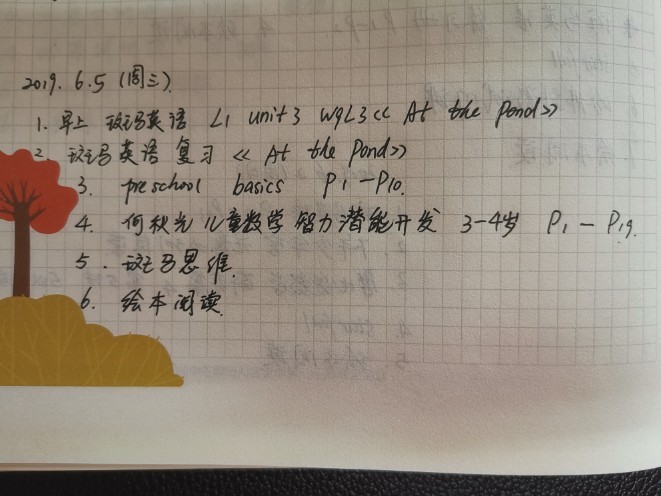 2019. 6.5 (周三).
1. 早上 斑马英语 L1 unit3 W9L3<< At the Pond>>
2. 斑马英语 复习 << At the Pond>>
3. preschool basics P1-P10.
4. 何秋光 儿童数学 智力潜能开发 3-4岁 P1-P19.
5. 斑马思维.
6. 绘本阅读.